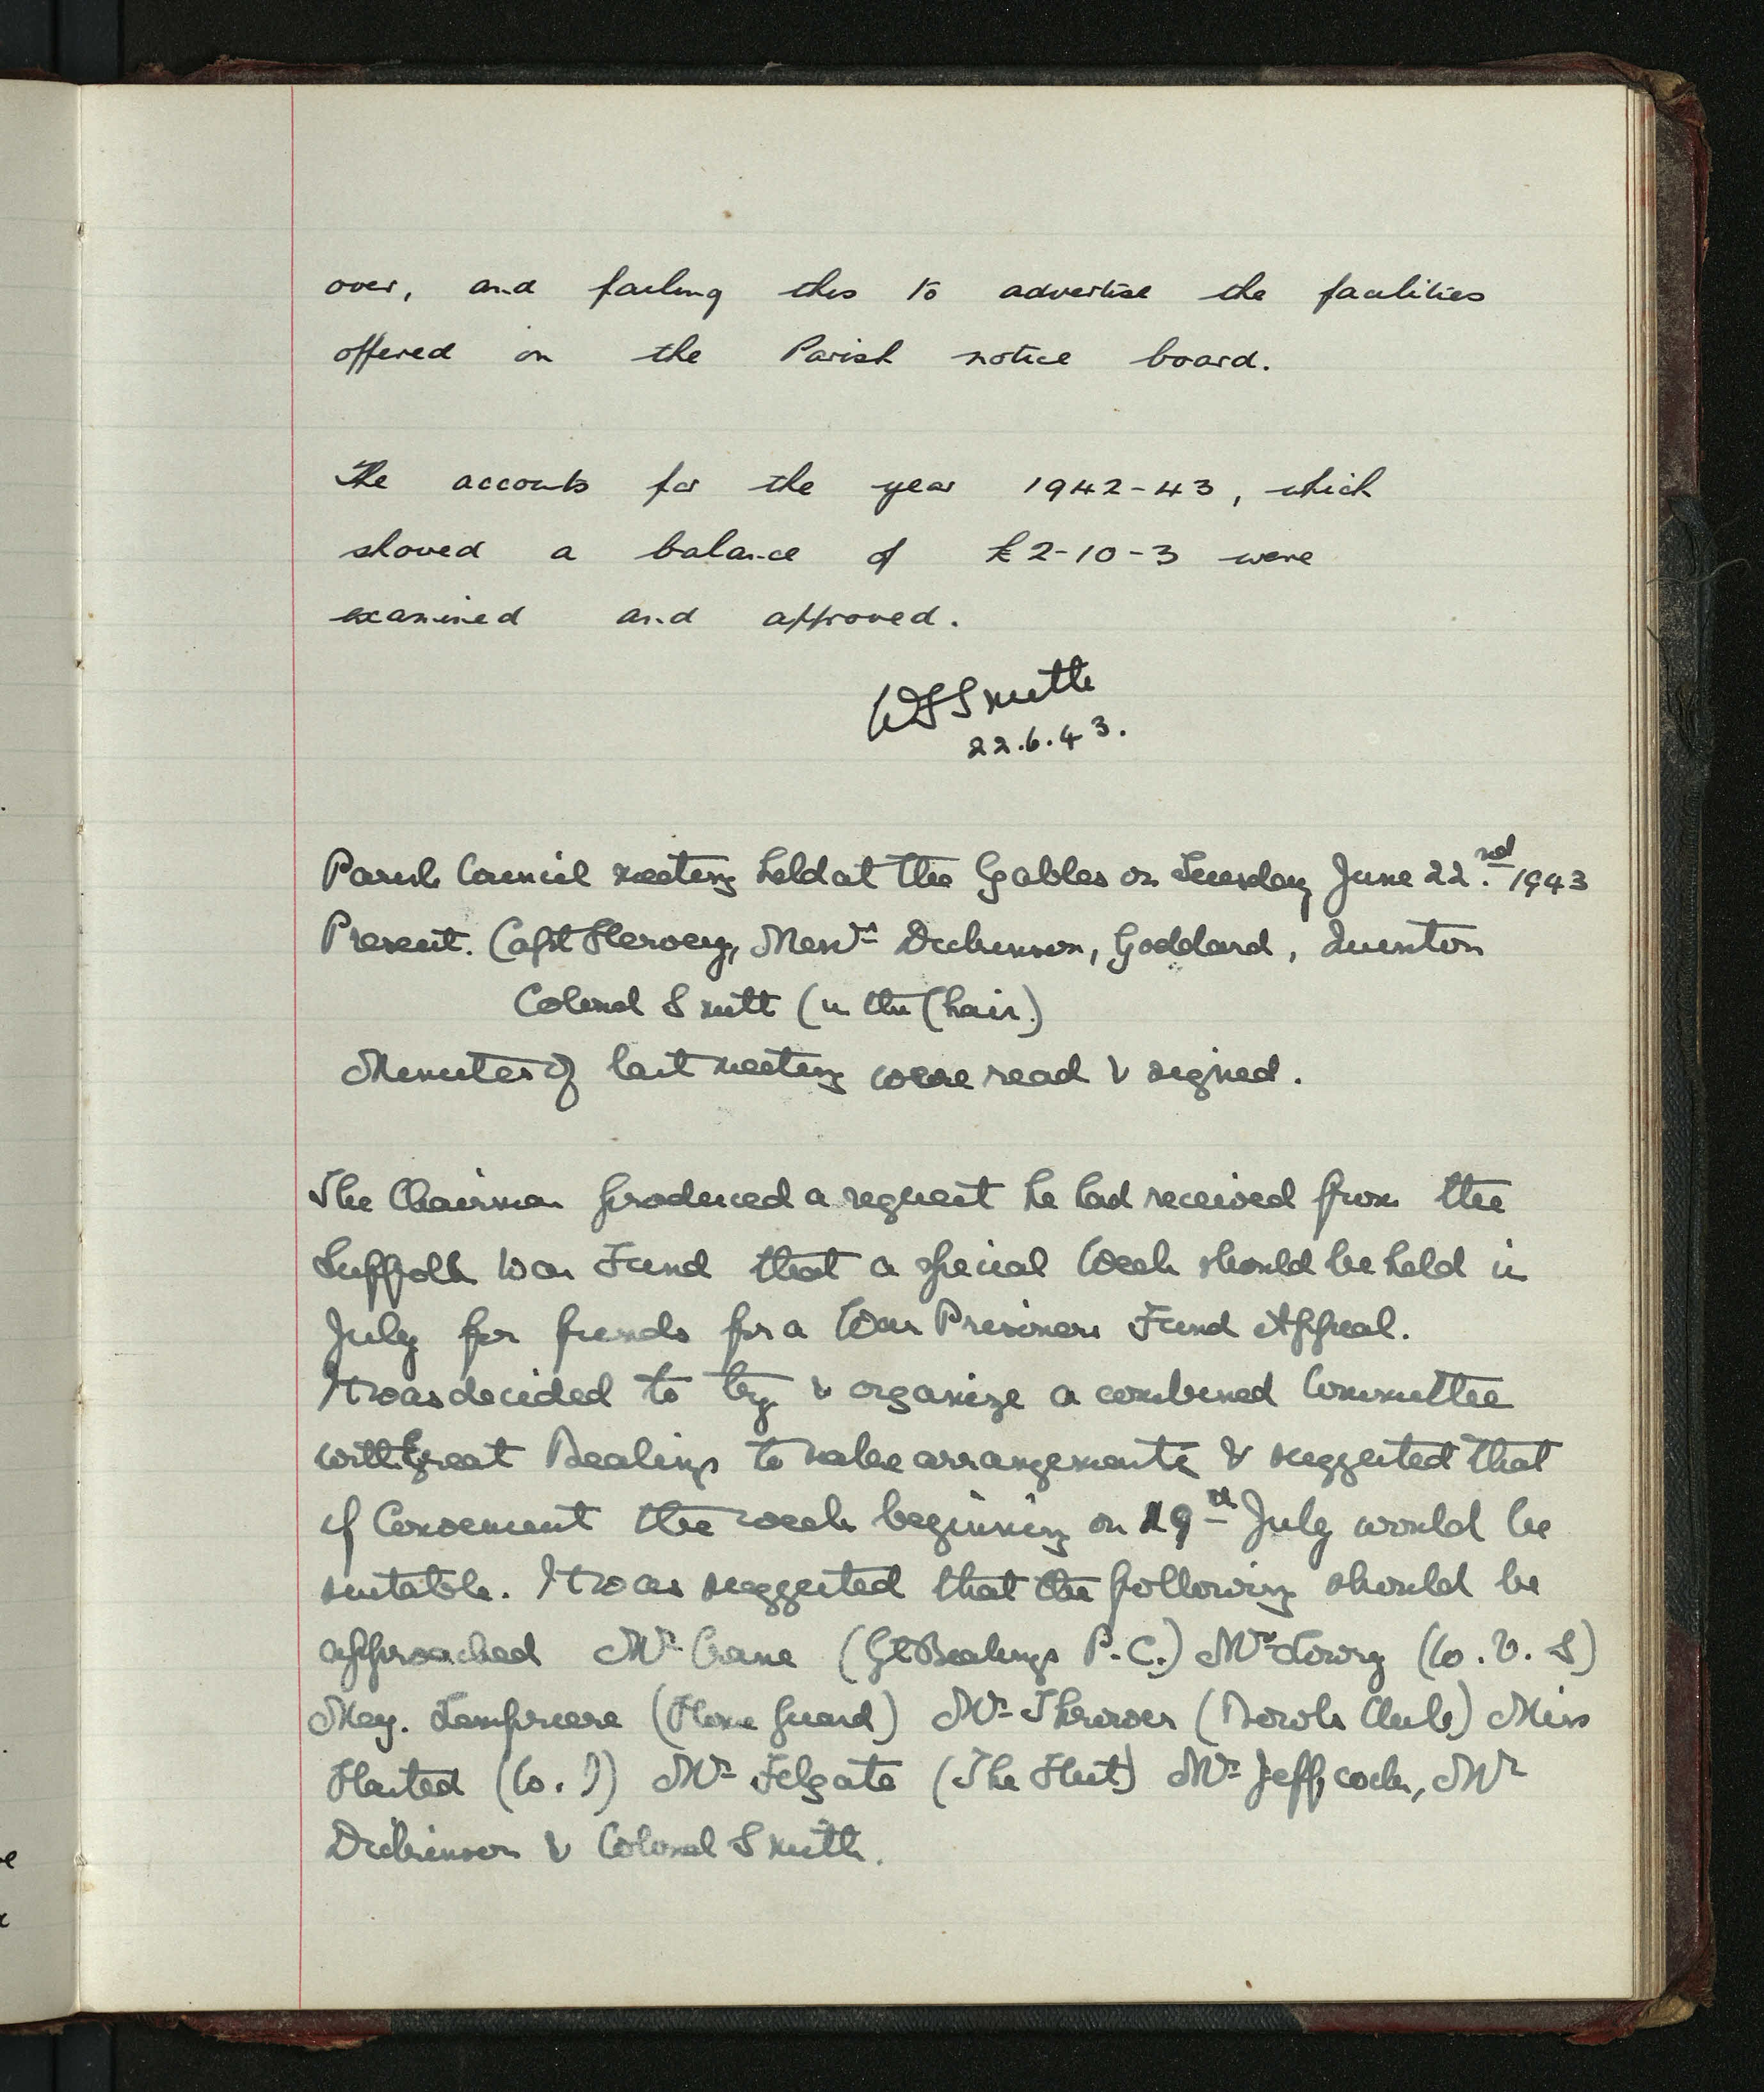 over, and failing this to advertise the facilities
offered on the Parish notice board.
The accounts for the year 1942-43, which
showed a balance of £2-10-3 were
examined and approved.
WFSmith
22.6.43.
Parish Council meeting held at the Gables on Tuesday June 22.nd 1943
Present. Capt Hervey, Messrs Dickinson, Goddard,
Colonel Smith (in the Chair.)
Minutes of last meeting were read & signed.
The Chairman produced a request he had received from the
Suffolk War Fund that a special Week should be held in
July for funds for a War Prisoners Fund Appeal.
It was decided to try & organize a combined Committee
with Great Bealings to make arrangements & suggested that
if Convenient the week beginning on 19th July would be
suitable. It was suggested that the following should be
approached Mr Crane (Gt Bealings P.C.) Mrs Lowry (W.V.S)
May. Lempriere (Home Guard) Mr Thrower (Bowls Club) Miss
(W.I) Mr Felgate (The Hut) Mr Jeffcock, Mr
Dickinson & Colonel Smith.